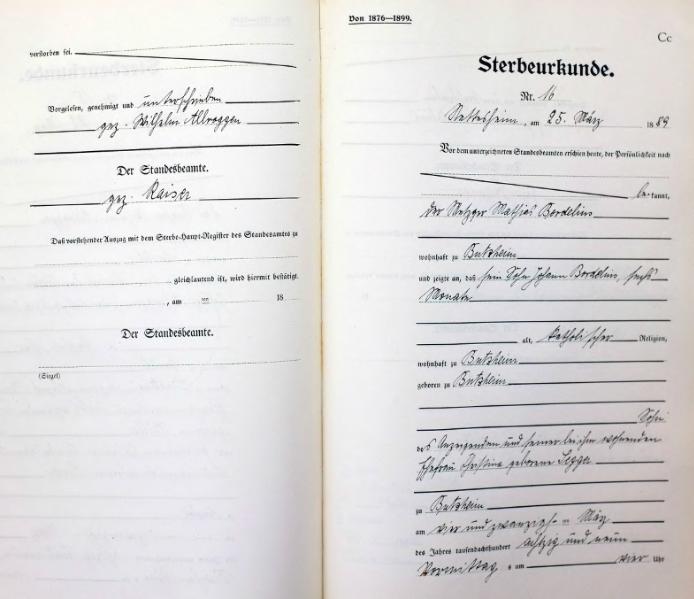 verstorben sei.
Vorgelesen, genehmigt und unterschrieben
gez. Wilhelm Allroggen
Der Standesbeamte.
gez. Kaiser
Daß vorstehender Auszug mit dem Sterbe-Haupt-Register des Standesamtes zu
gleichlautend ist, wird hiermit bestätigt.
, am 18
Der Standesbeamte.
(Siegel)
Von 1876—1899.
Cc
Sterbeurkunde.
Nr. 16
Nettesheim, am 25. März 1889
Vor dem unterzeichneten Standesbeamten erschien heute, der Persönlichkeit nach
be kannt,
der Metzger Mathias Bordelius
wohnhaft zu Butzheim
und zeigte an, daß sein Sohn Johann Bordelius, sechs
Monate
alt, katholischer Religion,
wohnhaft zu Butzheim
geboren zu Butzheim
Sohn
des Anzeigenden und seiner bei ihm wohnenden
Ehefrau Christina geborene
zu Butzheim
am vier und zwanzigsten März
des Jahres tausendachthundert achtzig und neun
Vormittag s um vier Uhr